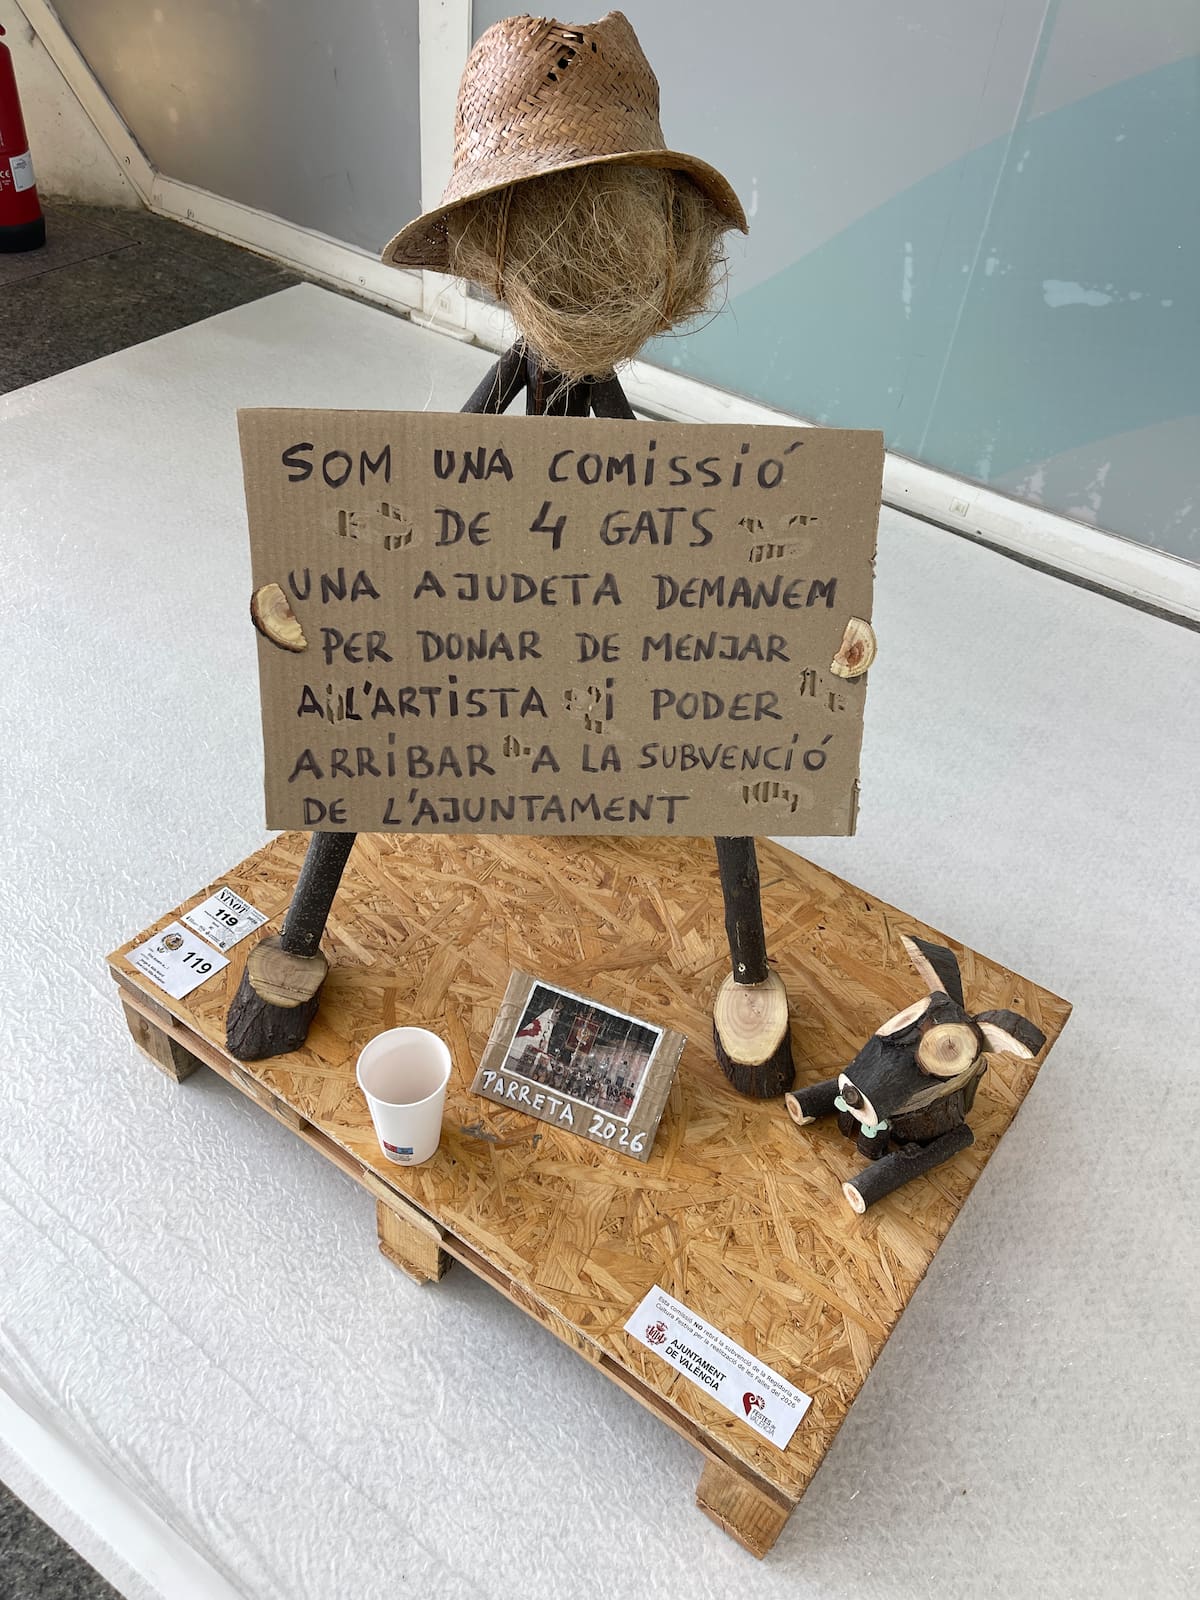 SOM UNA COMISSIÓ
DE 4 GATS
UNA AJUDETA DEMANEM
PER DONAR DE MENJAR
A L'ARTISTA I PODER
ARRIBAR A LA SUBVENCIÓ
DE L'AJUNTAMENT
NINOT
119
119
PARRETA 2026
Esta comissió NO rebrà la subvenció de la Regidoria de
Cultura Festiva per la realització de les Falles del 2026
AJUNTAMENT
DE VALÈNCIA
FESTES DE
VALÈNCIA
CE